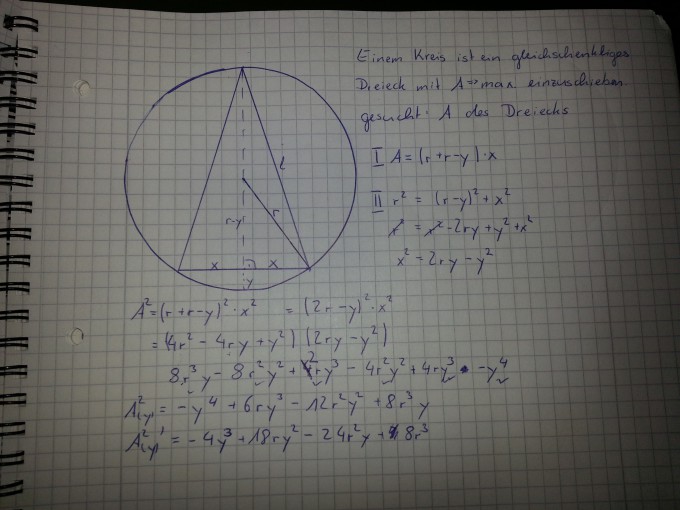 Einem Kreis ist ein gleichschenkliges
Dreieck mit A → max einzuschieben
gesucht: A des Dreiecks
I A = (r+r-y)·x
II r² = (r-y)² + x²
r² = r² - 2ry + y² + x²
x² = 2ry - y²
l
r
r-y
x x
y
A² = (r+r-y)²·x² = (2r-y)²·x²
= (4r² - 4ry + y²) (2ry - y²)
8r³y - 8r²y² + 2ry³ - 4r²y² + 4ry³ - y⁴
A²(y) = -y⁴ + 6ry³ - 12r²y² + 8r³y
A²(y)' = -4y³ + 18ry² - 24r²y + 8r³